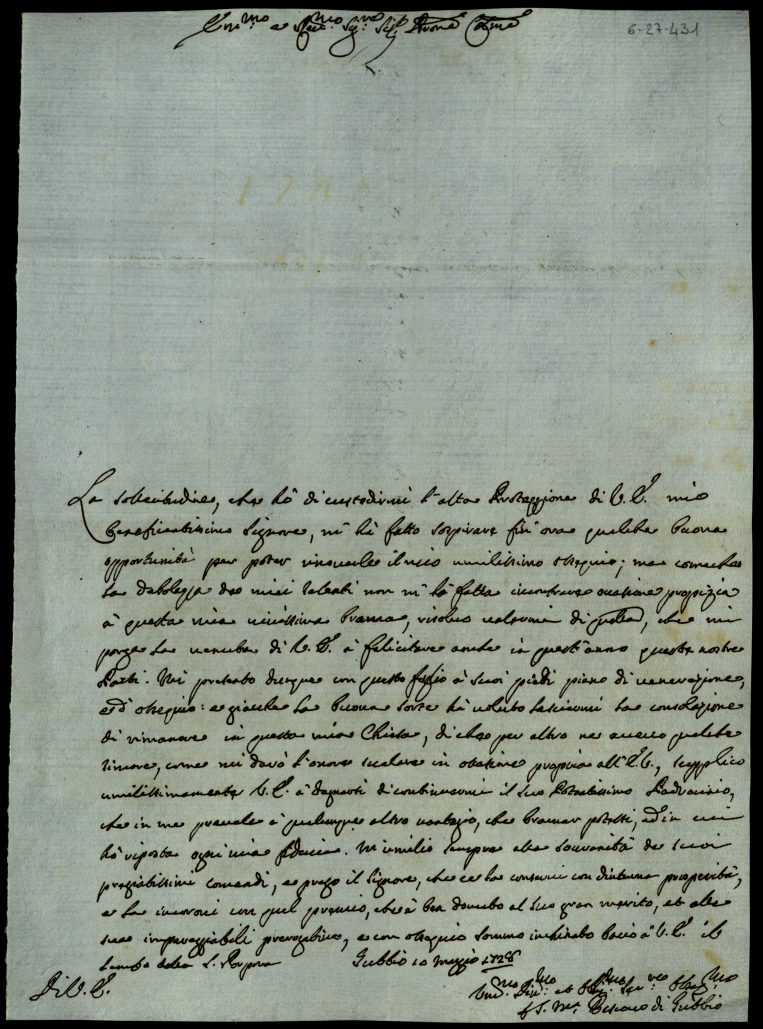 6-27-431
Em.mo e Rev.mo Sig.re Sig. Prone Col.mo
La sollecitudine, che hò di custodirmi l'alta Protezzione di V. E. mio
Beneficentissimo Signore, m'hà fatto sospirare fin ora qualche buona
opportunità per poter rinovarle il mio umilissimo ossequio; ma come che
la debolezza de miei talenti non m'hà fatta incontrare occasione propizia
à questa mia vivissima brama, risolvo valermi di quella, che mi
porge la venuta di V. E. à felicitare anche in quest'anno queste nostre
Parti. Mi protesto dunque con questo foglio à suoi piedi pieno di venerazione,
e d'ossequio: e giacche la buona sorte hà voluto lasciarmi la consolazione
di rimanere in questa mia Chiesa, di che per altro ne avevo qualche
timore, come mi darò l'onore svelare in occasione propria all'E. V., supplico
umilissimamente V. E. à degnarsi di continuarmi il suo Potentissimo Padrocinio,
che in me prevale à qualunque altro vantagio, che bramar potessi, ed in cui
hò riposta ogni mia fiducia. M'umilio sempre alla sovranità de suoi
pregiatissimi comandi, e prego il Signore, che ce la conservi con diuturna prosperità,
e la incoroni con quel premio, che è ben dovuto al suo gran merito, et alle
sue impareggiabili prerogative, e con ossequio sommo inchinato bacio à V. E. il
Lembo della S. Porpora
Gubbio 10 Maggio 1728
Di V. E.
Um.mo Div.mo et Obl.mo Ser.re Obseq.mo
f S. M.a Vescovo di Gubbio